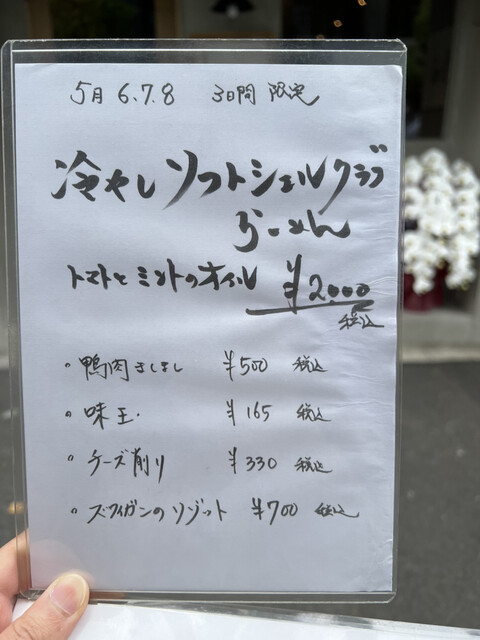 5月 6.7.8 3日間 限定
冷やし ソフトシェルクラブ
らーめん
トマトとミントのオイル ¥2000
税込
・鴨肉ましまし ¥500 税込
・味玉. ¥165 税込
・チーズ削り ¥330 税込
・ズワイガニのリゾット ¥700 税込